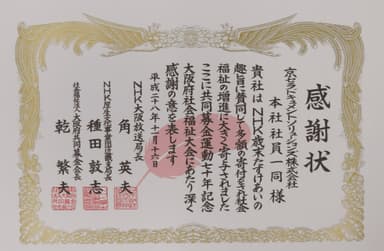 感謝状
京セラドキュメントソリューションズ株式会社
本社社員一同 様
貴社はNHK歳末たすけあいの
趣旨に賛同して多額の寄付をされ社会
福祉の増進に大きく寄与されました
ここに共同募金運動七十年記念
大阪府社会福祉大会にあたり深く
感謝の意を表します
平成二十八年十一月十六日
NHK大阪放送局長
角 英夫
NHK厚生文化事業団近畿支局長
種田 敦志
社会福祉法人大阪府共同募金会会長
乾 繁夫